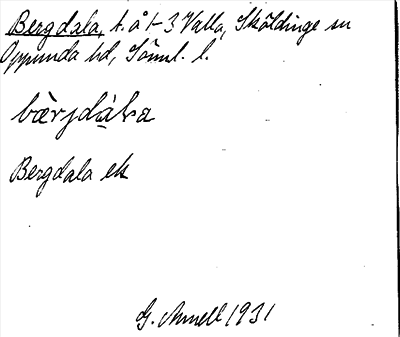 Bergdala, t. å 1-3 Valla, Sköldinge sn
Oppunda hd, Söml. l.
bærjdɑ̀la
Bergdala ek
G. Annell 1931